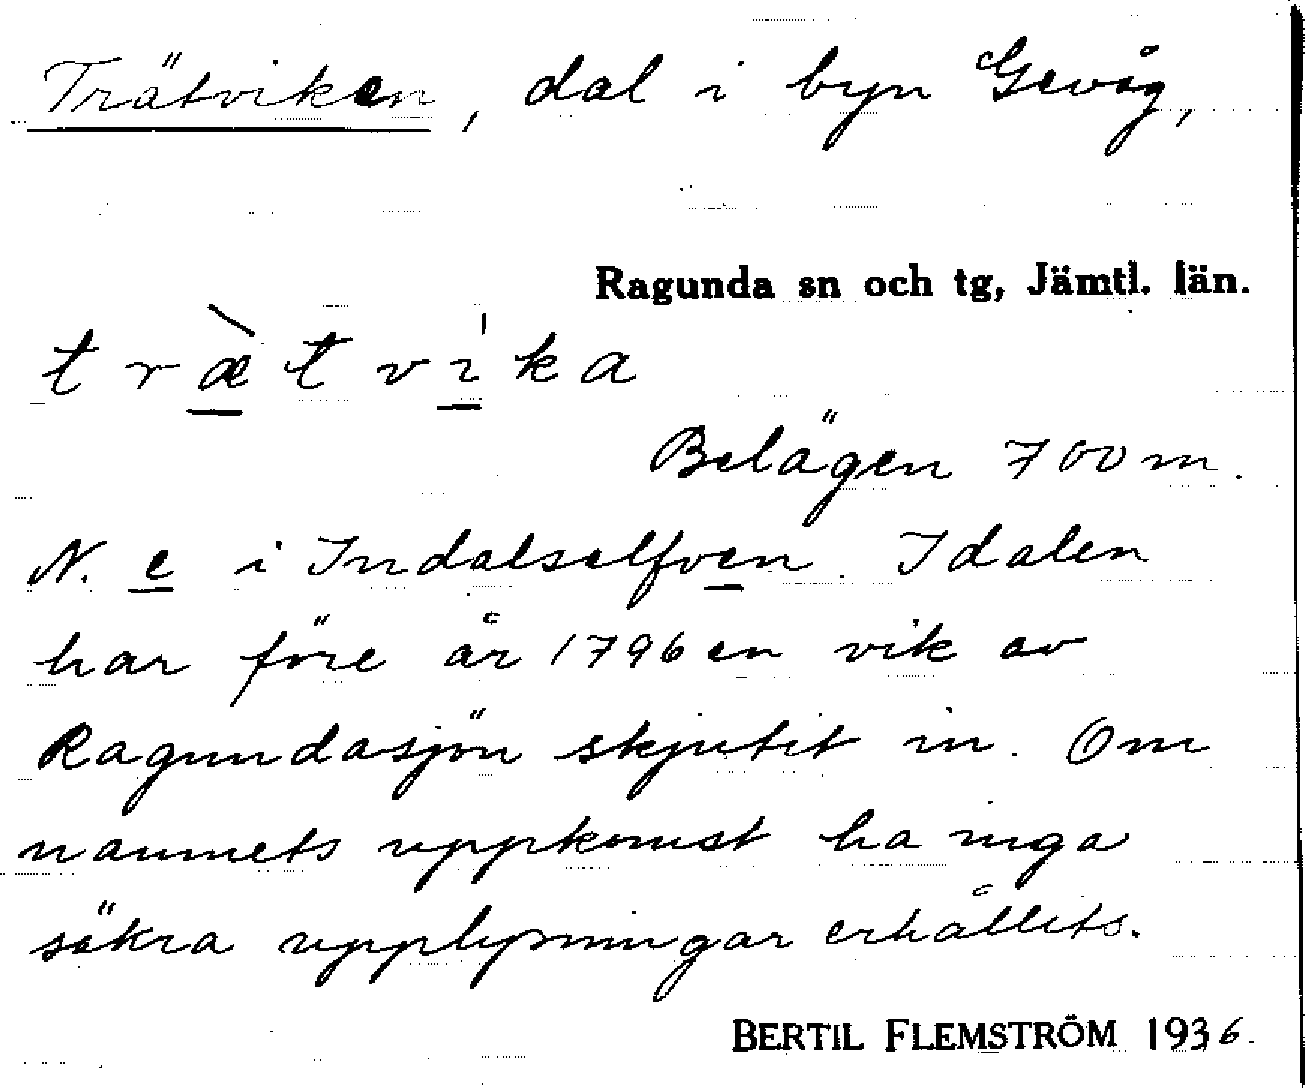 Trätviken, dal i byn Gevåg,
Ragunda sn och tg, Jämtl. län.
træ̀tvi̍ka
Belägen 700 m.
N. e i Indalselfven. I dalen
har före år 1796 en vik av
Ragundasjön skjutit in. Om
namnets uppkomst ha inga
säkra upplysningar erhållits.
BERTIL FLEMSTRÖM 1936.